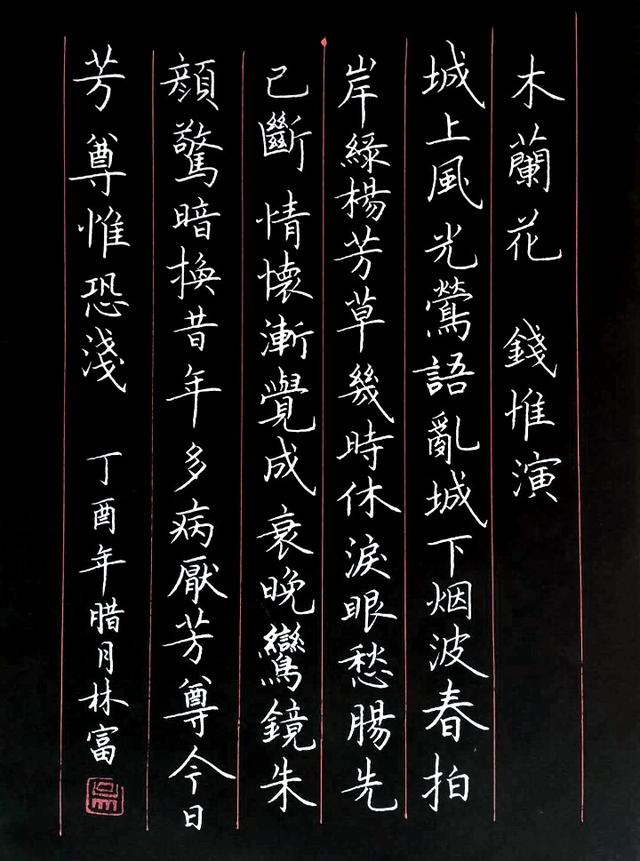 木蘭花 錢惟演
城上風光鶯語亂城下烟波春拍
岸綠楊芳草幾時休淚眼愁腸先
已斷情懷漸覺成衰晚鸞鏡朱
顏驚暗換昔年多病厭芳尊今日
芳尊惟恐淺 丁酉年腊月林富